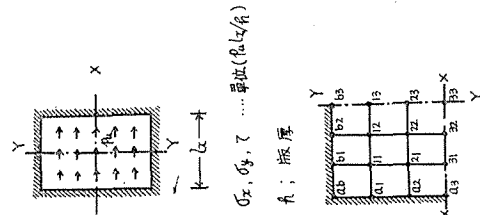 Y
X
X
Y
lx
σx, σy, τ ……單位(Pulx/h)
h; 版厚
Y
ab b1 b2 b3
a1 11 12 13
a2 21 22 23
a3 31 32 33
X X